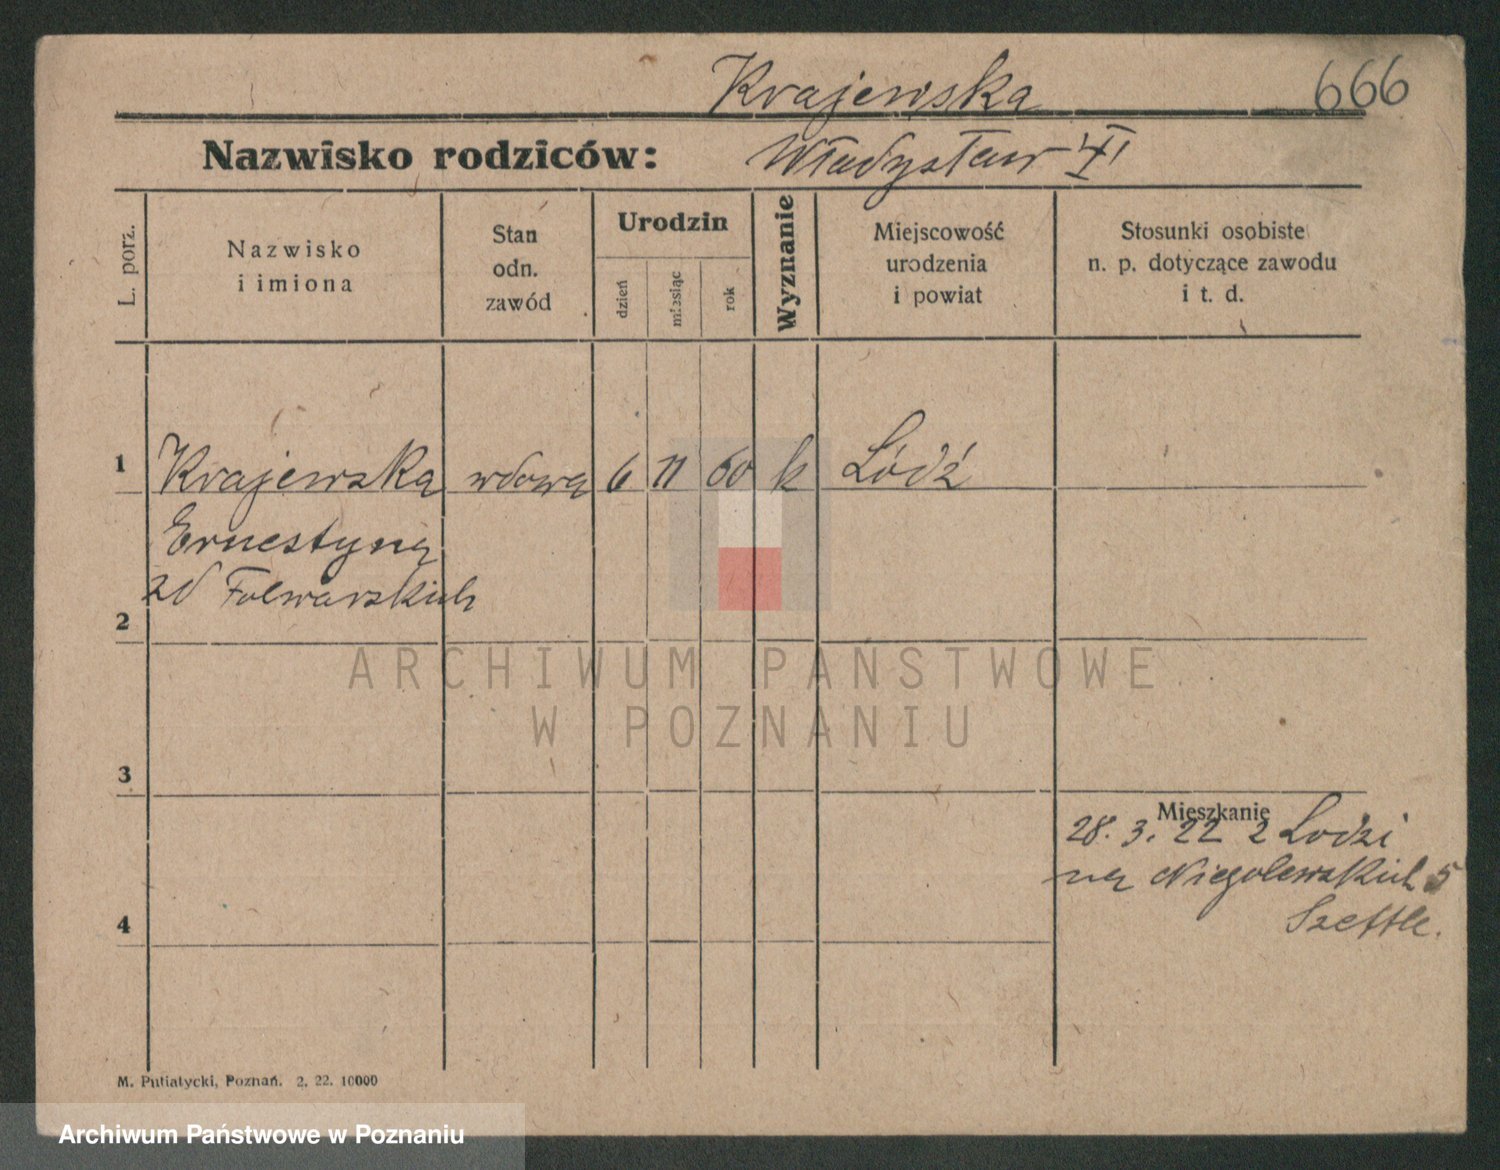 Krajewska 666
Nazwisko rodziców: Władysław VI
L. porz.
Nazwisko
i imiona
Stan
odn.
zawód
Urodzin
dzień
miesiąc
rok
Wyznanie
Miejscowość
urodzenia
i powiat
Stosunki osobiste
n. p. dotyczące zawodu
i t. d.
1 Krajewska wdowa 6 11 60 k Łódź
Ernestyna
zd Folwarskich
2
3
4
Mieszkanie
28. 3. 22 z Łodzi
na Niegolewskich 5
ARCHIWUM PAŃSTWOWE
W POZNANIU
M. Putiatycki, Poznań. 2. 22. 10000
Archiwum Państwowe w Poznaniu